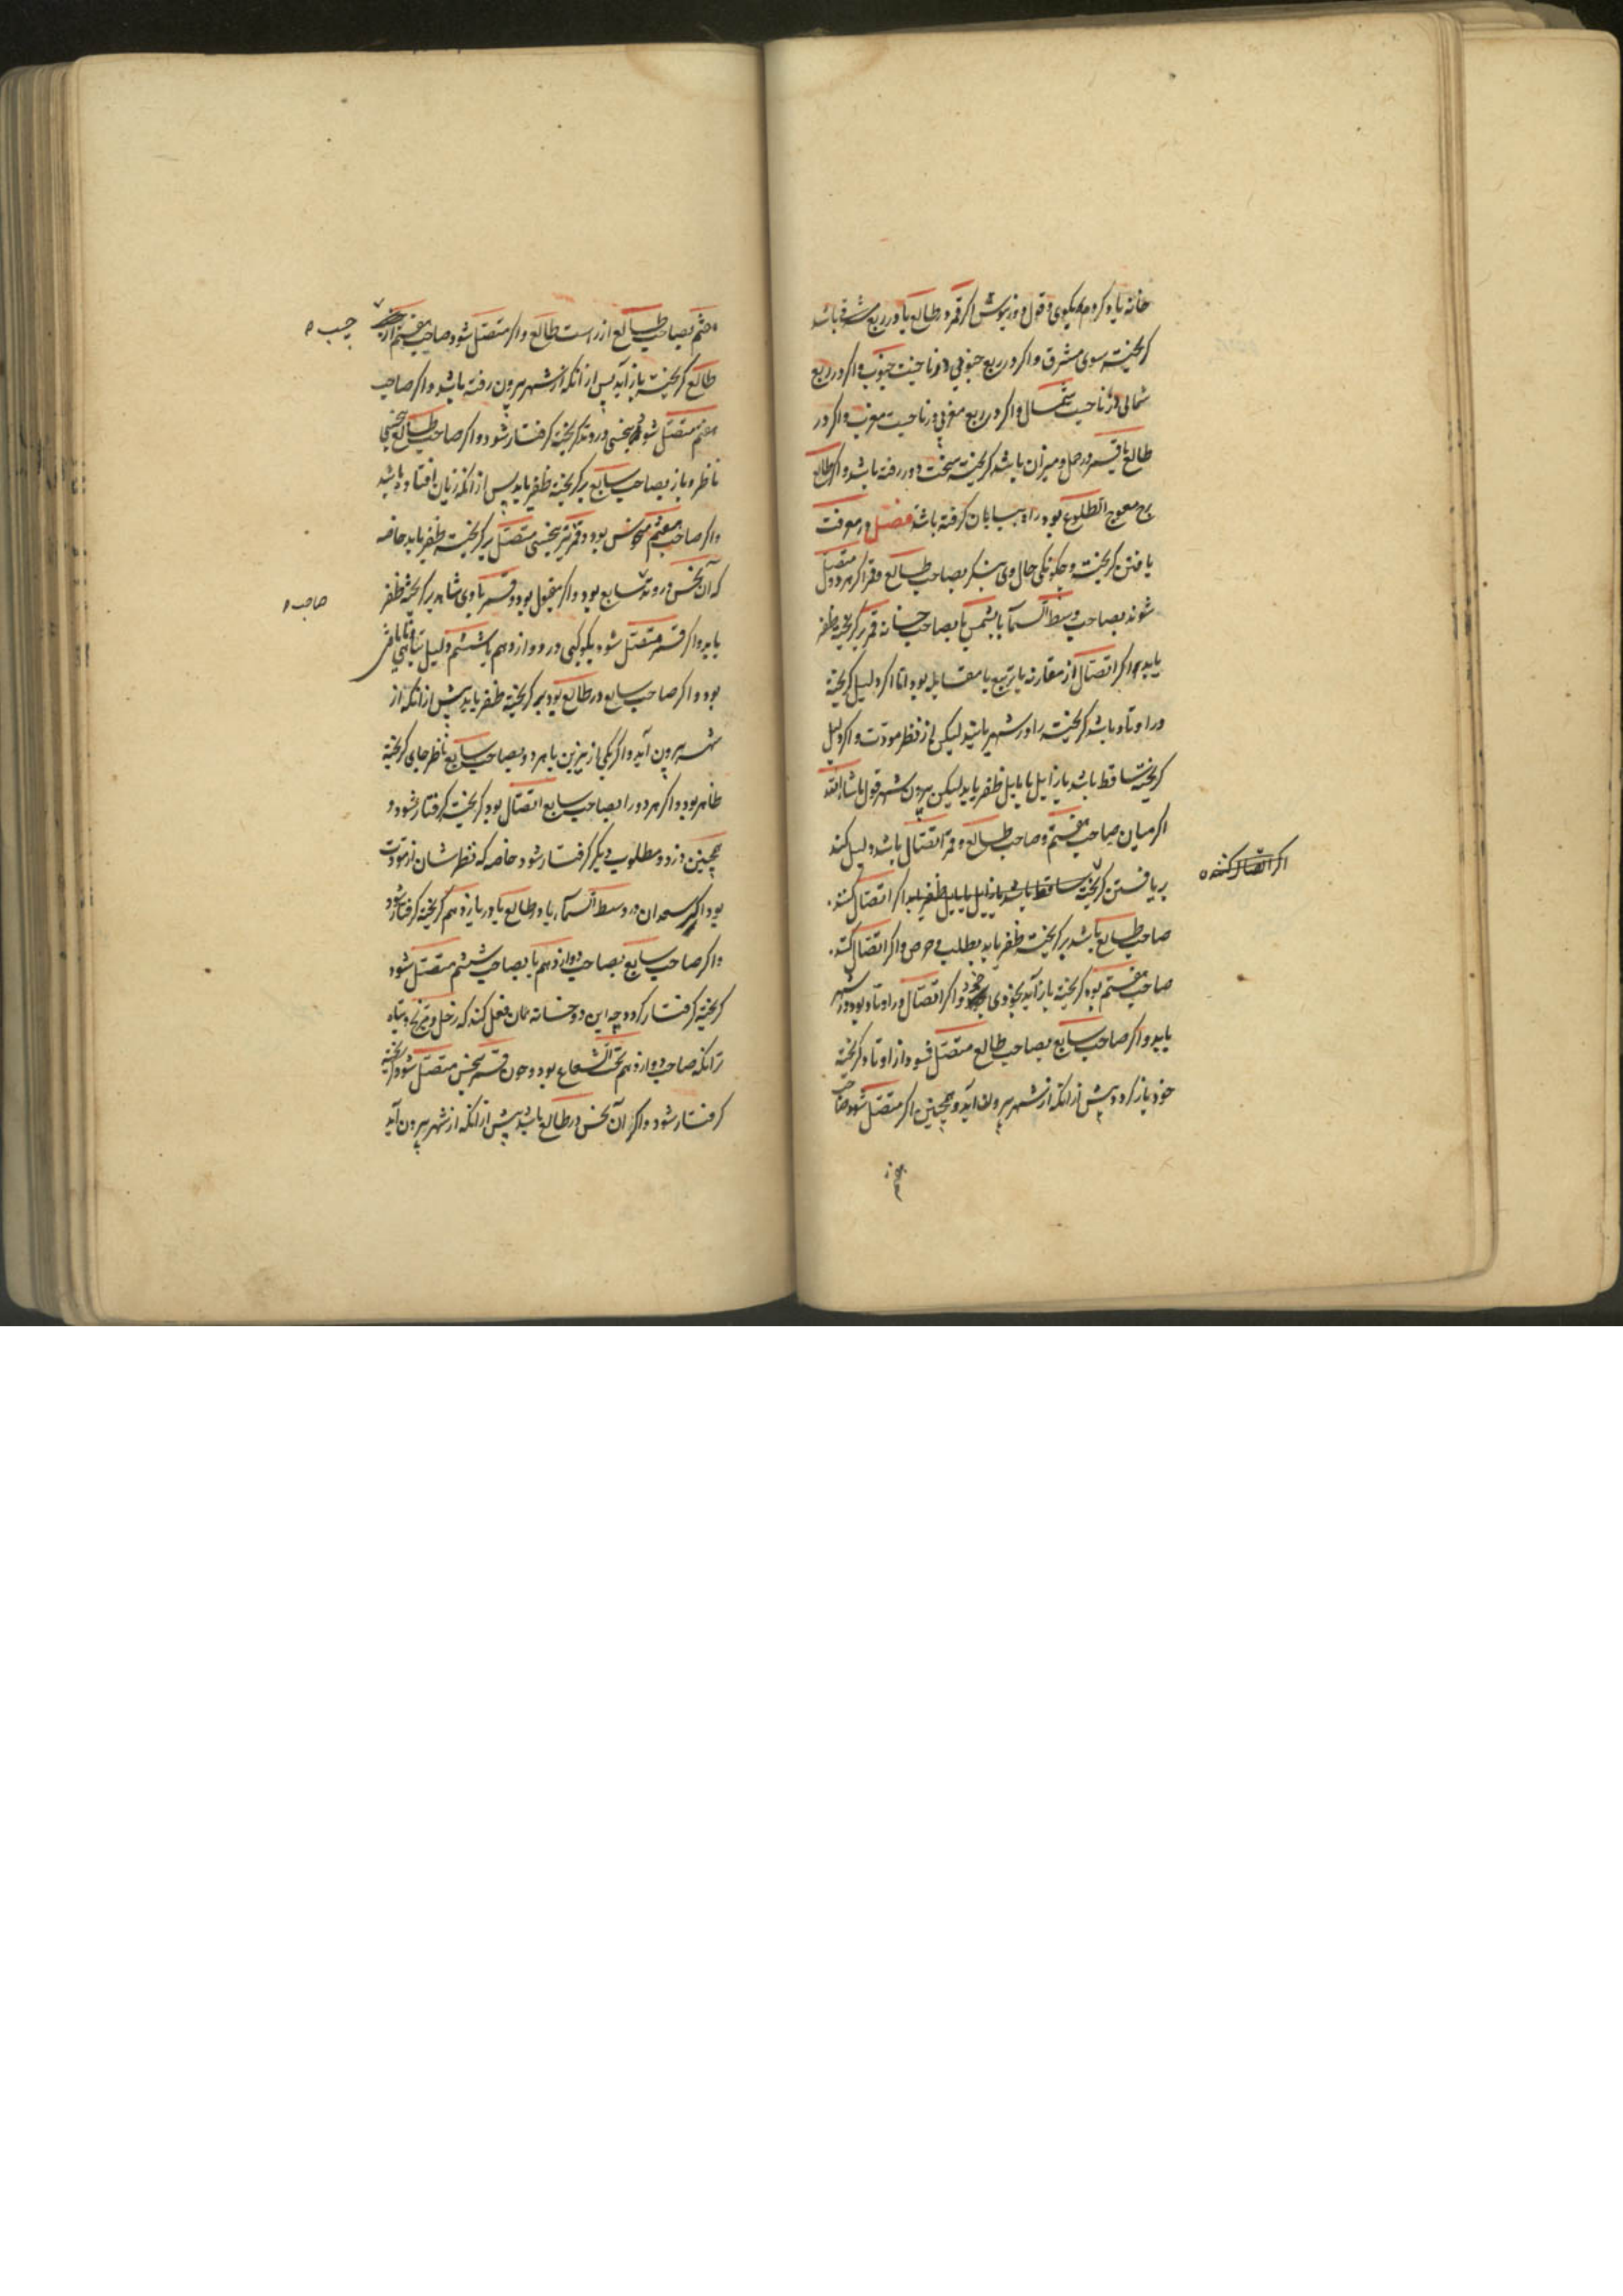 خانه یاد کردم نیکوی و قول دوربوش اکر قمر در طالع یا در ربع شرقی باشد
کریخته سوی مشرق و اکر در ربع جنوبی در ناحیت جنوب و اکر در ربع
شمالی در ناحیت شمال و اکر در ربع مغربی در ناحیت مغرب و اکر در
طالع یا قمر در حمل و میزان باشد کریخته سخت دور رفته باشد و اکر طالع
برج معوج الطلوع بود راه بیابان کرفته باشد فصل در معرفت
یافتن کریخته و چکونکی حال وی بنکر بصاحب طالع و قمر اکر هر دو متصل
شوند بصاحب وسط السما یا بشمس یا بصاحب خانه قمر بر کریخته ظفر
یابد و اکر اتصال از مقارنه یا تربیع یا مقابله بود اما اکر دلیل کریخته
در اوتاد باشد کریخته را در شهر یابند لیکن نه از نظر مودت و اکر دلیل
کریخته ساقط باشد یا زایل یا مایل ظفر یابد لیکن بیرون شهر قول ماشاالله
اکر میان صاحب هفتم و صاحب طالع و قمر اتصال باشد دلیل کند
بر یافتن کریخته ساقط باشد یا زایل یا مایل ظفر یابد اکر اتصال کننده
صاحب طالع باشد بر کریخته ظفر یابد بطلب و حرص و اکر اتصال کننده
صاحب هفتم بود کریخته باز آید بخودی خود و اکر اتصال در اوتاد بود در شهر
یابد و اکر صاحب سابع بصاحب طالع متصل شود از اوتاد کریخته
خود باز کردد پیش از انکه از شهر بیرون آید و همچنین اکر متصل شود صاحب
اکر اتصال کننده
هفتم بصاحب طالع از راست طالع و اکر متصل شود صاحب هفتم از
چپ
طالع کریخته باز آید پس از آنکه از شهر بیرون رفته باشد و اکر صاحب
هفتم متصل شود بنحسی در وتد کریخته کرفتار شود و اکر صاحب طالع بنحسی
ناظر و باز بصاحب سابع بر کریخته ظفر یابد پس از آنکه زیان افتاده باشد
و اکر صاحب هفتم منحوس بود و قمر نیز بنحسی متصل بر کریخته ظفر یابد خاصه
که آن نحس در وتد سابع بود و اکر مقبول بود و قمر با وی شاهد بر کریخته ظفر
صاحب
یابد و اکر قمر متصل شود بکوکبی در دوازدهم یا ششم دلیل تباهی
بود و اکر صاحب سابع در طالع بود بر کریخته ظفر یابد پیش از آنکه از
شهر بیرون آید و اکر یکی از نیرین یا هر دو بصاحب سابع ناظر جای کریخته
ظاهر بود و اکر هر دو را بصاحب سابع اتصال بود کریخته کرفتار شود و
همچنین دزد و مطلوب دیکر کرفتار شود خاصه که نظرشان از مودت
بود و اکر سعدان در وسط السماء یا در طالع یا در یازدهم کریخته کرفتار شود
و اکر صاحب سابع بصاحب دوازدهم یا بصاحب ششم متصل شود
کریخته کرفتار کردد چه این دو خانه همان فعل کند که زحل و مریخ
زانکه صاحب دوازدهم تحت الشعاع بود و چون قمر بنحس متصل شود کریخته
کرفتار شود و اکر آن نحس در طالع باشد پیش از آنکه از شهر بیرون آید